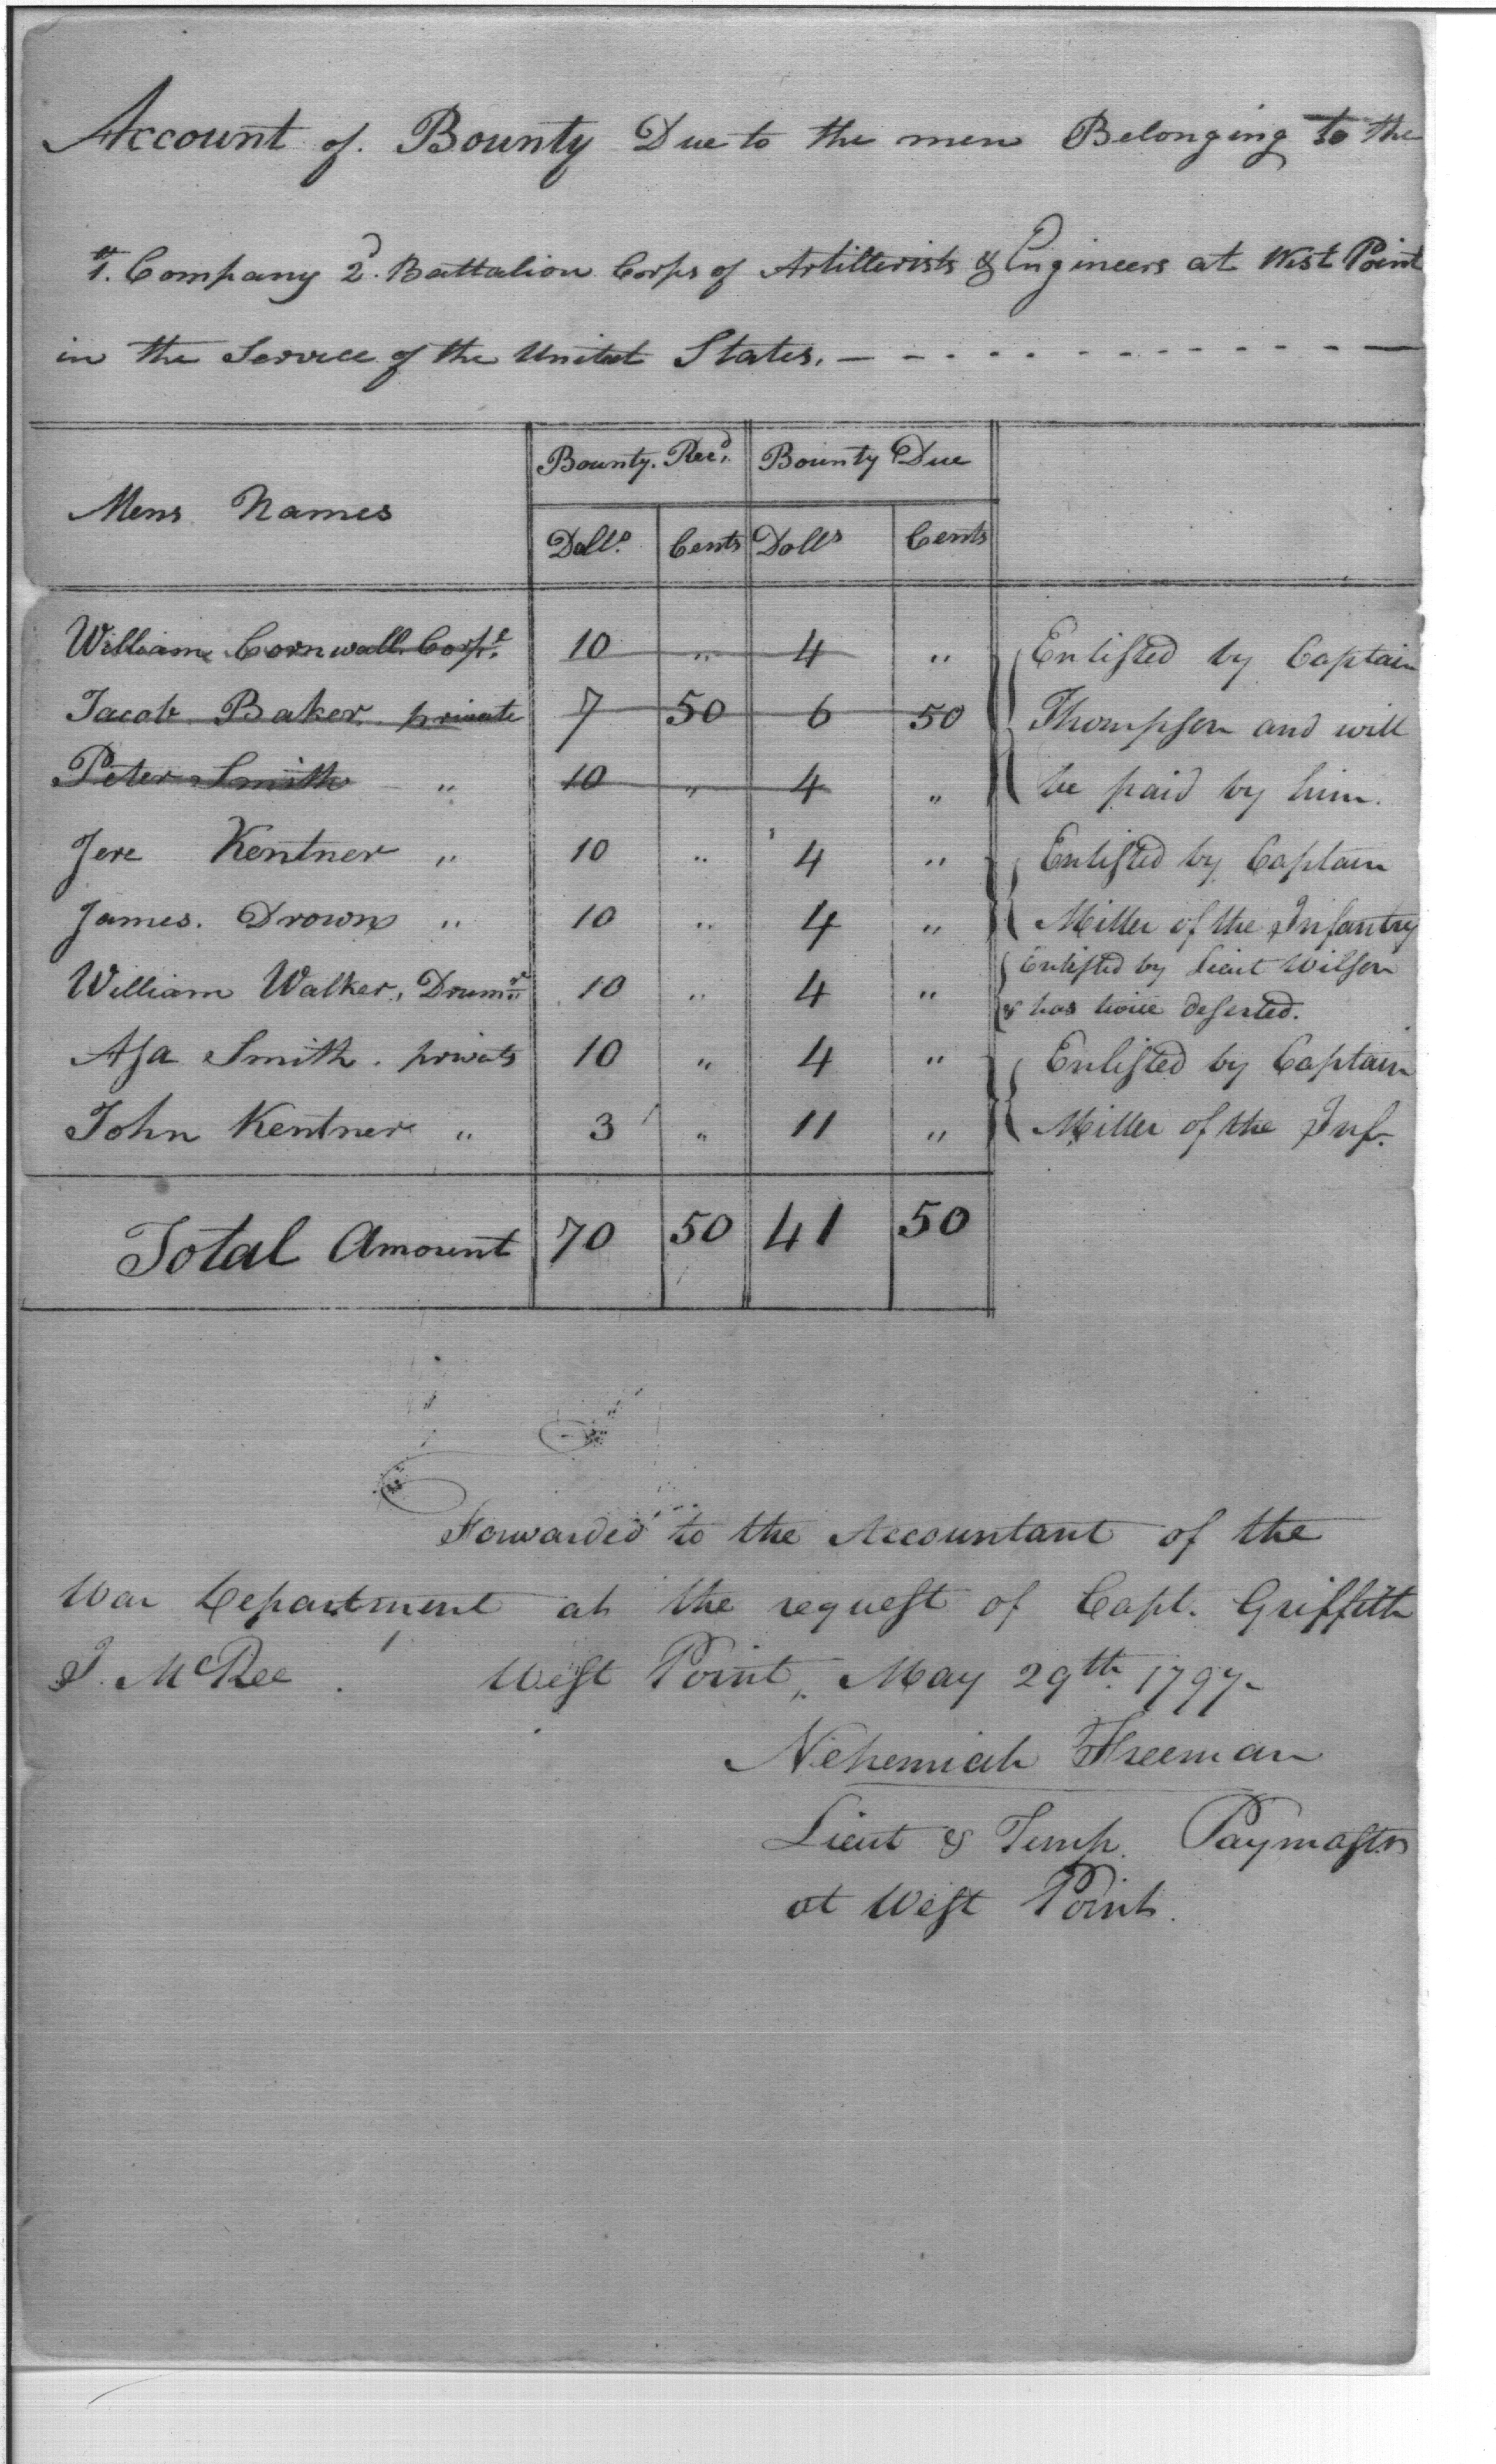 Account of Bounty Due to the men Belonging to the
1st. Company 2d. Battalion Corps of Artillerists & Engineers at West Point
in the Service of the United States. — - - - - - - - - - - - - —
Mens Names Bounty. Recd. Bounty Due
Dolls. Cents Dolls Cents
William Cornwall. Corpl. 10 " 4 " Enlisted by Captain
Jacob Baker. private 7 50 6 50 Thompson and will
Peter Smith " 10 " 4 " be paid by him.
Jere Kentner " 10 " 4 " Enlisted by Captain
James. Drown " 10 " 4 " Miller of the Infantry
William Walker, Drumr. 10 " 4 " Enlisted by Lieut Wilson
& has twice deserted.
Asa Smith. private 10 " 4 " Enlisted by Captain
John Kentner " 3 " 11 " Miller of the Inf.
Total Amount 70 50 41 50
Forwarded to the Accountant of the
War Department at the request of Capt. Griffith
J. McRee. West Point, May 29th. 1797-
Nehemiah Freeman
Lieut & Temp. Paymaster
at West Point.